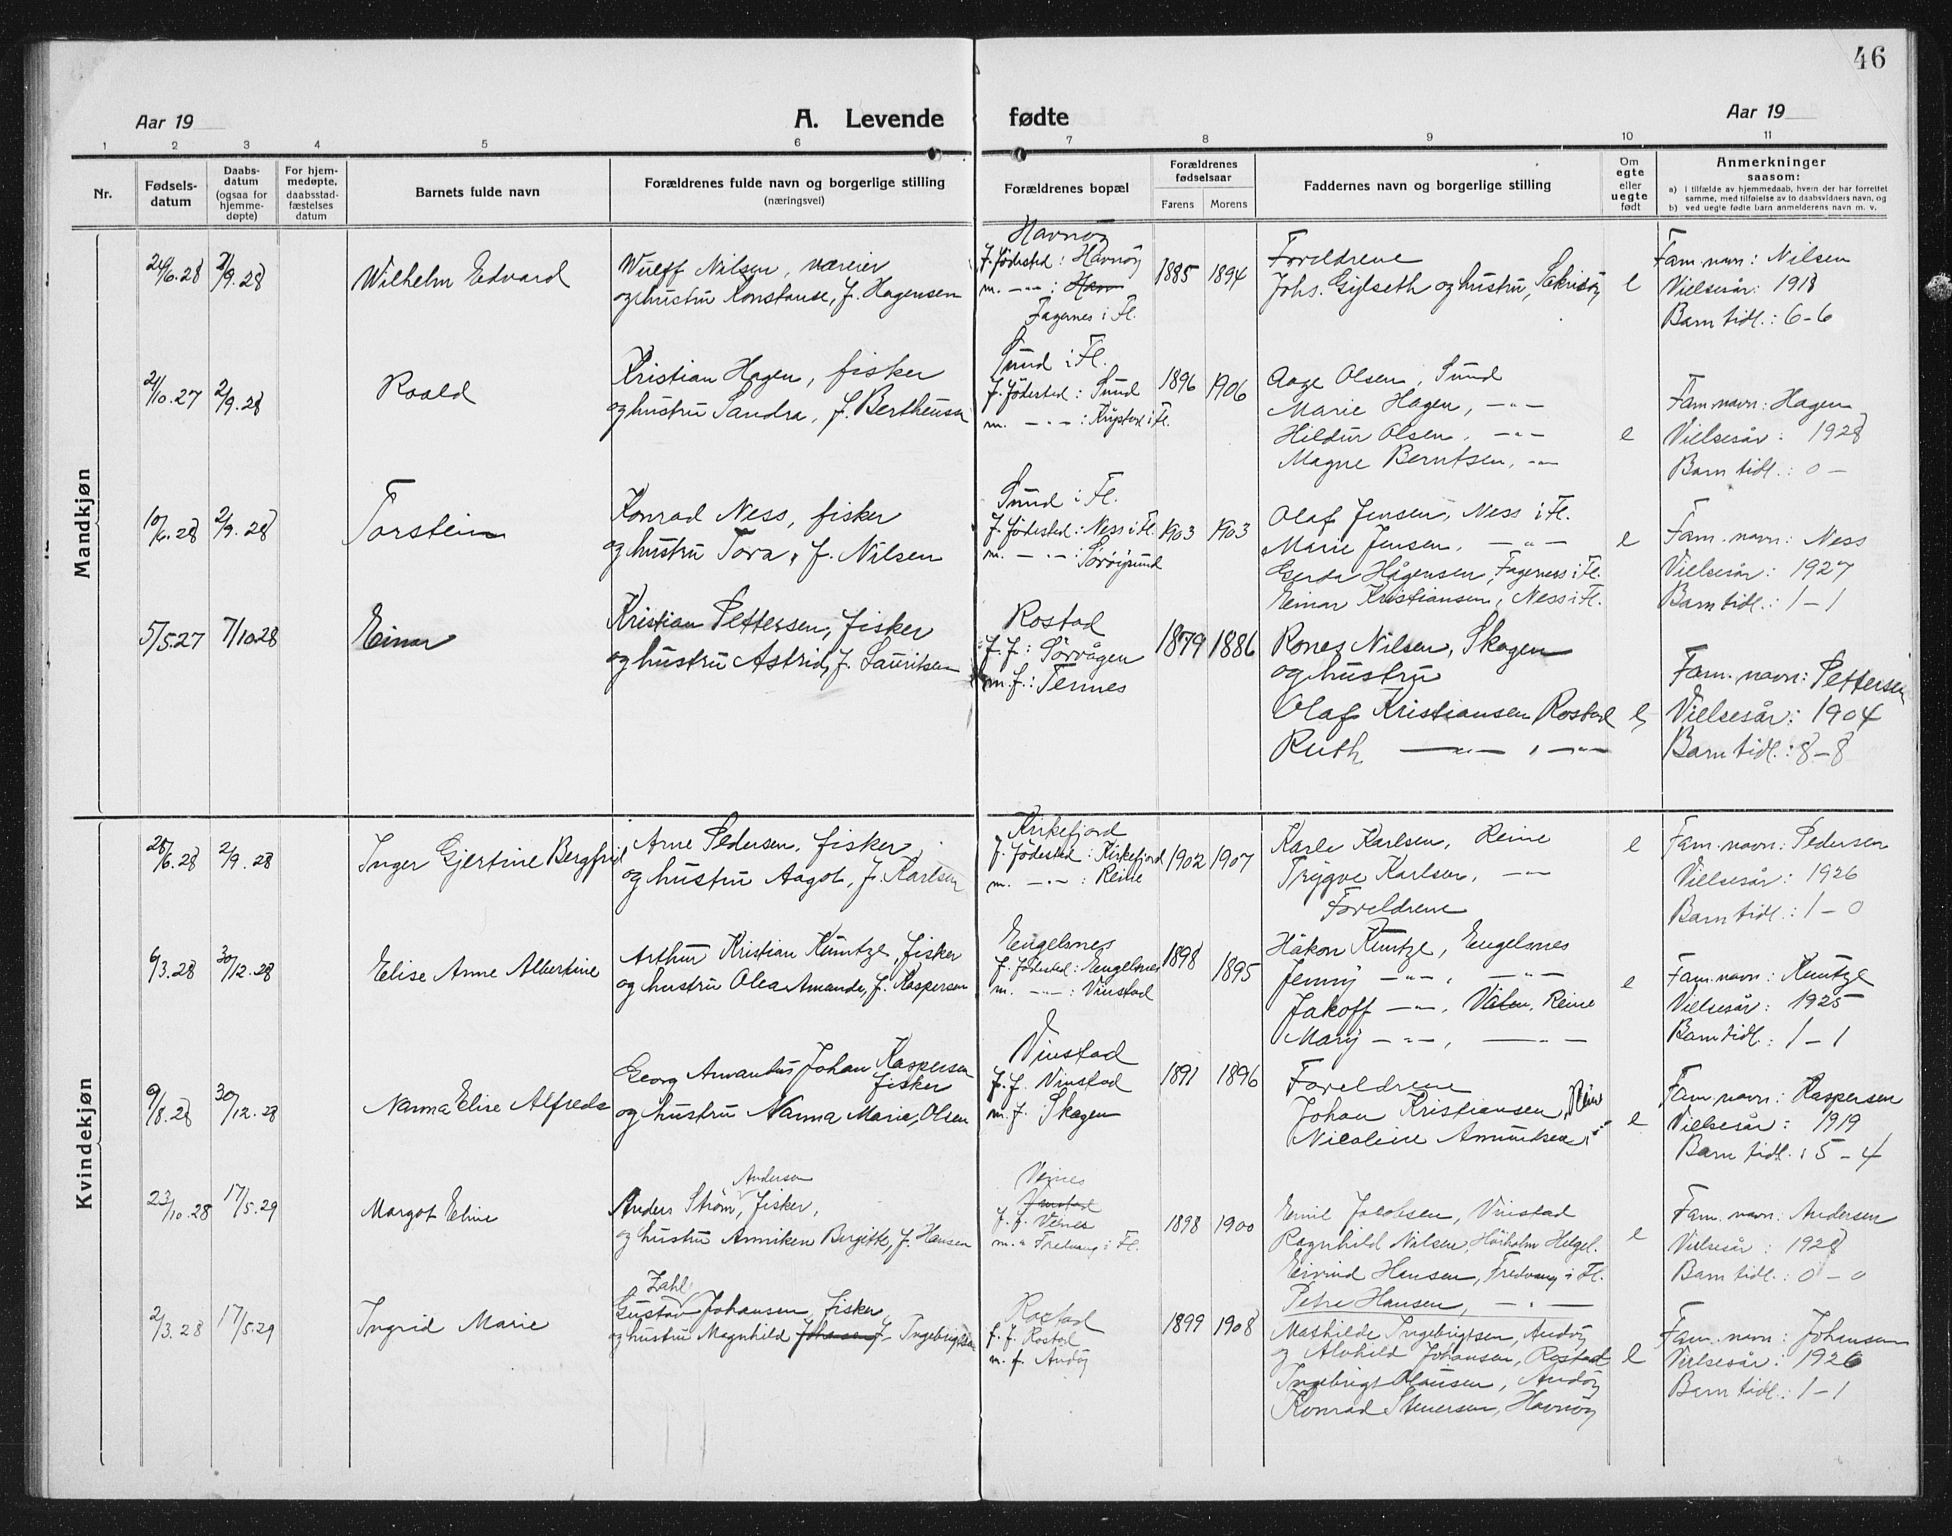 46
Aar 19
A. Levende fødte
Aar 19
1 2 3 4 5 6 7 8 9 10 11
Nr.
Fødsels-
datum
Daabs-
datum
(ogsaa for
hjemme-
døpte)
For hjem-
medøpte,
daabsstad-
fæstelses
datum
Barnets fulde navn
Forældrenes fulde navn og borgerlige stilling
(næringsvei)
Forældrenes bopæl
Forældrenes
fødselsaar
Farens Morens
Faddernes navn og borgerlige stilling
Om
egte
eller
uegte
født
Anmerkninger
saasom:
a) i tilfælde av hjemmedaab, hvem der har forrettet
samme, med tilføielse av to daabsvidners navn, og
b) ved uegte fødte barn anmelderens navn m. v.
Mandkjøn
2/9.28
Wilhelm Edvard
Wulff Nilsen, væreier
og hustru Konstanse, f. Hagensen
Havnøy
f. fødested: Havnøy
m. -"- : Havn
Fagernes i Fl.
1885 1894
Foreldrene
Johs. Gylseth og hustru, Sakrisøy
e
Fam. navn: Nilsen
Vielsesår: 1918
Barn tidl.: 6-6
21/10.27 2/9.28
Roald
Kristian Hagen, fisker
og hustru Sandra, f. Bertheusen
Sund i Fl.
f. fødested: Sund
m. -"- : i Fl.
1896 1906
Aage Olsen, Sund
Marie Hagen, -"-
Hildur Olsen, -"-
Magne Berntsen, -"-
e
Fam. navn: Hagen
Vielsesår: 1928
Barn tidl.: 0 -
10/6.28 2/9.28
Torstein
Konrad Ness, fisker
og hustru Tora, f. Nilsen
Sund i Fl.
f. fødested: Ness i Fl.
m. -"- : Sørøysund
1903 1903
Olaf Jensen, Ness i Fl.
Marie Jensen, -"-
Gerda Hågensen, Fagerness i Fl.
Einar Kristiansen, Ness i Fl.
e
Fam. navn: Ness
Vielsesår: 1927
Barn tidl.: 1-1
5/5.27 7/10.28
Einar
Kristian Pettersen, fisker
og hustru Astrid, f. Lauritsen
Rostad
f. f: Sørvågen
m. f.: Tennes
1879 1886
Rones Nilsen, Skogen
og hustru
Olaf Kristiansen Rostad
Ruth -"-, -"-
e
Fam. navn: Pettersen
Vielsesår: 1904
Barn tidl.: 8-8
Kvindekjøn
28/6.28 2/9.28
Inger Gjertine Bergfrid
Arne Pedersen, fisker
og hustru Aagot, f. Karlsen
Kirkefjord
f. fødested: Kirkefjord
m. -"- : Reine
1902 1907
Karle Karlsen, Reine
Trygve Karlsen, -"-
Foreldrene
e
Fam. navn: Pedersen
Vielsesår: 1926
Barn tidl.: 1-0
6/3.28 30/12.28
Elise Anne Albertine
Arthur Kristian Kuntze, fisker
og hustru Olea Amanda, f. Kaspersen
Engelsnes
f. fødested: Engelsnes
m. -"- : Vinstad
1898 1895
Håkon Kuntze, Engelsnes
Jenny -"-, -"-
Jakoff -"-, Valen, Reine
Mary -"-, -"-
e
Fam. navn: Kuntze
Vielsesår: 1925
Barn tidl.: 1-1
9/8.28 30/12.28
Nanna Elise Alfreda
Georg Amandus Johan Kaspersen
fisker
og hustru Nanna Marie, Olsen
Vinstad
f. f. Vinstad
m. f. Skogen
1891 1896
Foreldrene
Johan Kristiansen, Reine
Nicoline Amundsen, -"-
e
Fam. navn: Kaspersen
Vielsesår: 1919
Barn tidl.: 5-4
23/10.28 17/5.29
Margot Eline
Andersen
Anders Strøm, fisker,
og hustru Anniken Birgitte, f. Hansen
f. f.
m. " Fredvang i Fl.
1898 1900
Emil Jacobsen, Vinstad
Ragnhild Nilsen, Helgel.
Eivind Hansen, Fredvang i Fl.
Petra Hansen, -"-
e
Fam. navn: Andersen
Vielsesår: 1928
Barn tidl.: 0-0
2/3.28 17/5.29
Ingrid Marie
Zahl
Gustav Johansen, fisker
og hustru Magnhild Johansen f. Ingebrigtsen
Rostad
f. f. Rostad
m. f. Andøy
1899 1908
Mathilde Ingebrigtsen, Andøy
og Alvhild Johansen, Rostad
Ingebrigt Olausen, Andøy
Konrad Steversen, Havnøy
e
Fam. navn: Johansen
Vielsesår: 1926
Barn tidl.: 1-1